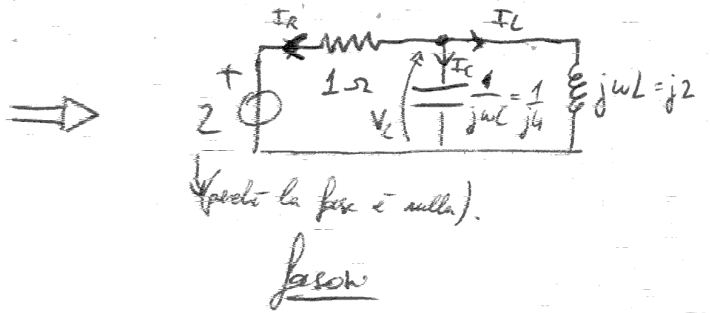 I_R I_L
+ 1Ω I_C
2 V_C 1/jωC = 1/j4 jωL = j2
(perché la fase è nulla).
fasori